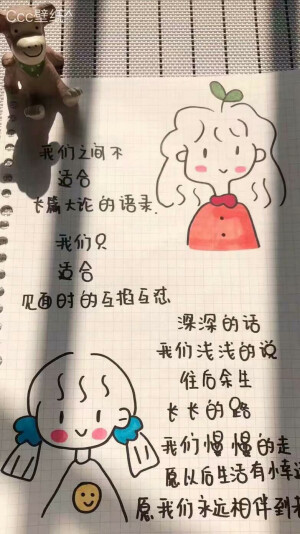 Ccc壁纸^
我们之间不
适合
长篇大论的语录.
我们只
适合
见面时的互掐互怼
深深的话
我们浅浅的说
往后余生
长长的路
我们慢慢的走
愿以后生活有小幸运
愿我们永远相伴到